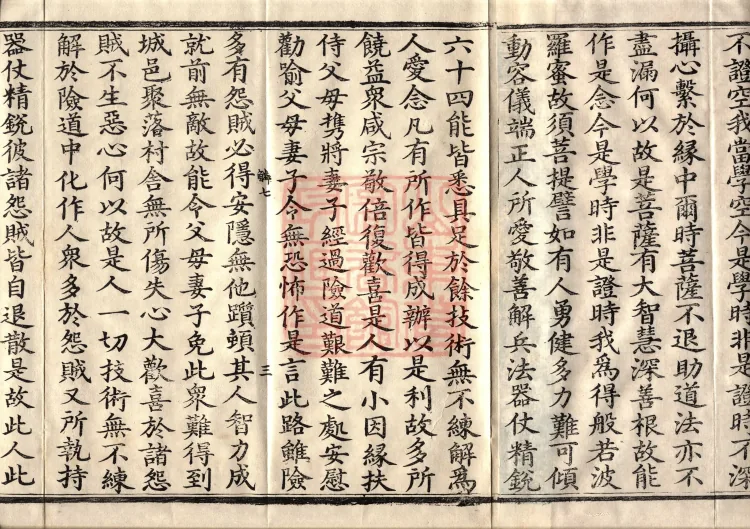 不證空我當學空今是學時非是證時不深
攝心繫於緣中爾時菩薩不退助道法亦不
盡漏何以故是菩薩有大智慧深善根故能
作是念今是學時非是證時我爲得般若波
羅蜜故須菩提譬如有人勇健多力難可傾
動容儀端正人所愛敬善解兵法器仗精銳
六十四能皆悉具足於餘技術無不練解爲
人愛念凡有所作皆得成辦以是利故多所
饒益衆咸宗敬倍復歡喜是人有小因緣扶
侍父母携將妻子經過險道艱難之處安慰
勸喻父母妻子令無恐怖作是言此路雖險
多有怨賊必得安隱無他躓頓其人智力成
就前無敵故能令父母妻子免此衆難得到
城邑聚落村舍無所傷失心大歡喜於諸怨
賊不生惡心何以故是人一切技術無不練
解於險道中化作人衆多於怨賊又所執持
器仗精銳彼諸怨賊皆自退散是故此人此
七
三